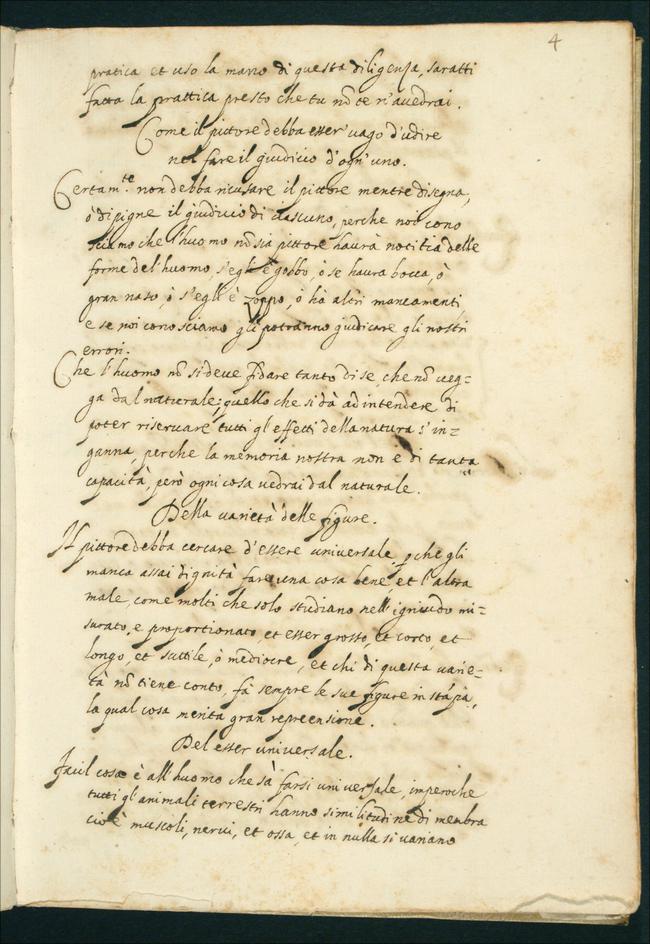 4
pratica et uso la mano di questa diligenza, saratti
fatta la prattica presto che tu nõ te n'avedrai.
Come il pittore debba esser' vago d'udire
nel fare il giudicio d'ogn'uno.
Certam.te non debba ricusare il pittore mentre disegna,
ò dipigne il giudicio di ciascuno, perche noi cono
sciamo che l'huomo nõ sia pittore haura notitia delle
forme del'huomo, s'egli è gobbo, ò se haura bocca, ò
gran naso, ò s'egli è zoppo, ò hà altri mancamenti,
e se noi conosciamo gli potranno giudicare gli nostri
errori.
Che l'huomo nõ si deve fidare tanto di se, che nõ veg=
ga dal naturale; quello che si dà ad intendere di
poter riservare tutti gl'effetti della natura s'in=
ganna, perche la memoria nostra non è di tanta
capacità, però ogni cosa vedrai dal naturale.
Della varietà delle figure.
Il pittore debba cercare d'essere universale, p che gli
manca assai dignità fare una cosa bene, et l'altra
male, come molti che solo studiano nell'ignudo mi=
surato, e proportionato, et esser grosso, et corto, et
longo, et suttile, ò mediocre, et chi di questa varie=
tà nõ tiene conto, fà sempre le sue figure in stãpa,
la qual cosa merita gran reprensione.
Del esser universale.
Facil cosa è all'huomo che sà farsi universale, imperoche
tutti gl'animali terrestri hanno similitudine di membra
cioè muscoli, nervi, et ossa, et in nulla si variano